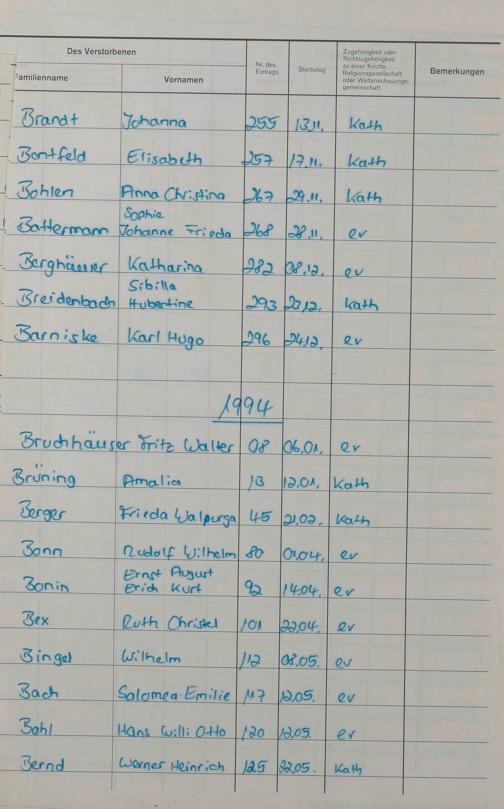 Des Verstorbenen
Familienname Vornamen Nr. des Eintrags Sterbetag Zugehörigkeit oder Nichtzugehörigkeit zu einer Kirche, Religionsgesellschaft oder Weltanschauungs-gemeinschaft Bemerkungen
Brandt Johanna 255 13.11. Kath
Bontfeld Elisabeth 257 17.11. Kath
Bohlen Anna Christina 267 29.11. Kath
Sophie
Battermann Johanne Frieda 268 28.11. ev
Berghäuser Katharina 282 08.12. ev
Sibilla
Breidenbach Hubertine 293 20.12. Kath
Barniske Karl Hugo 296 24.12. ev
1994
Bruchhäuser Fritz Walter 08 06.01. ev
Brüning Amalia 13 12.01. Kath
Berger Frieda Walpurga 45 21.02. Kath
Bonn Rudolf Wilhelm 80 01.04. ev
Ernst August
Bonin Erich Kurt 92 14.04. ev
Bex Ruth Christel 101 22.04. ev
Bingel Wilhelm 112 08.05. ev
Bach Salomea Emilie 117 12.05. ev
Bohl Hans Willi Otto 120 12.05. ev
Bernd Werner Heinrich 125 22.05. Kath